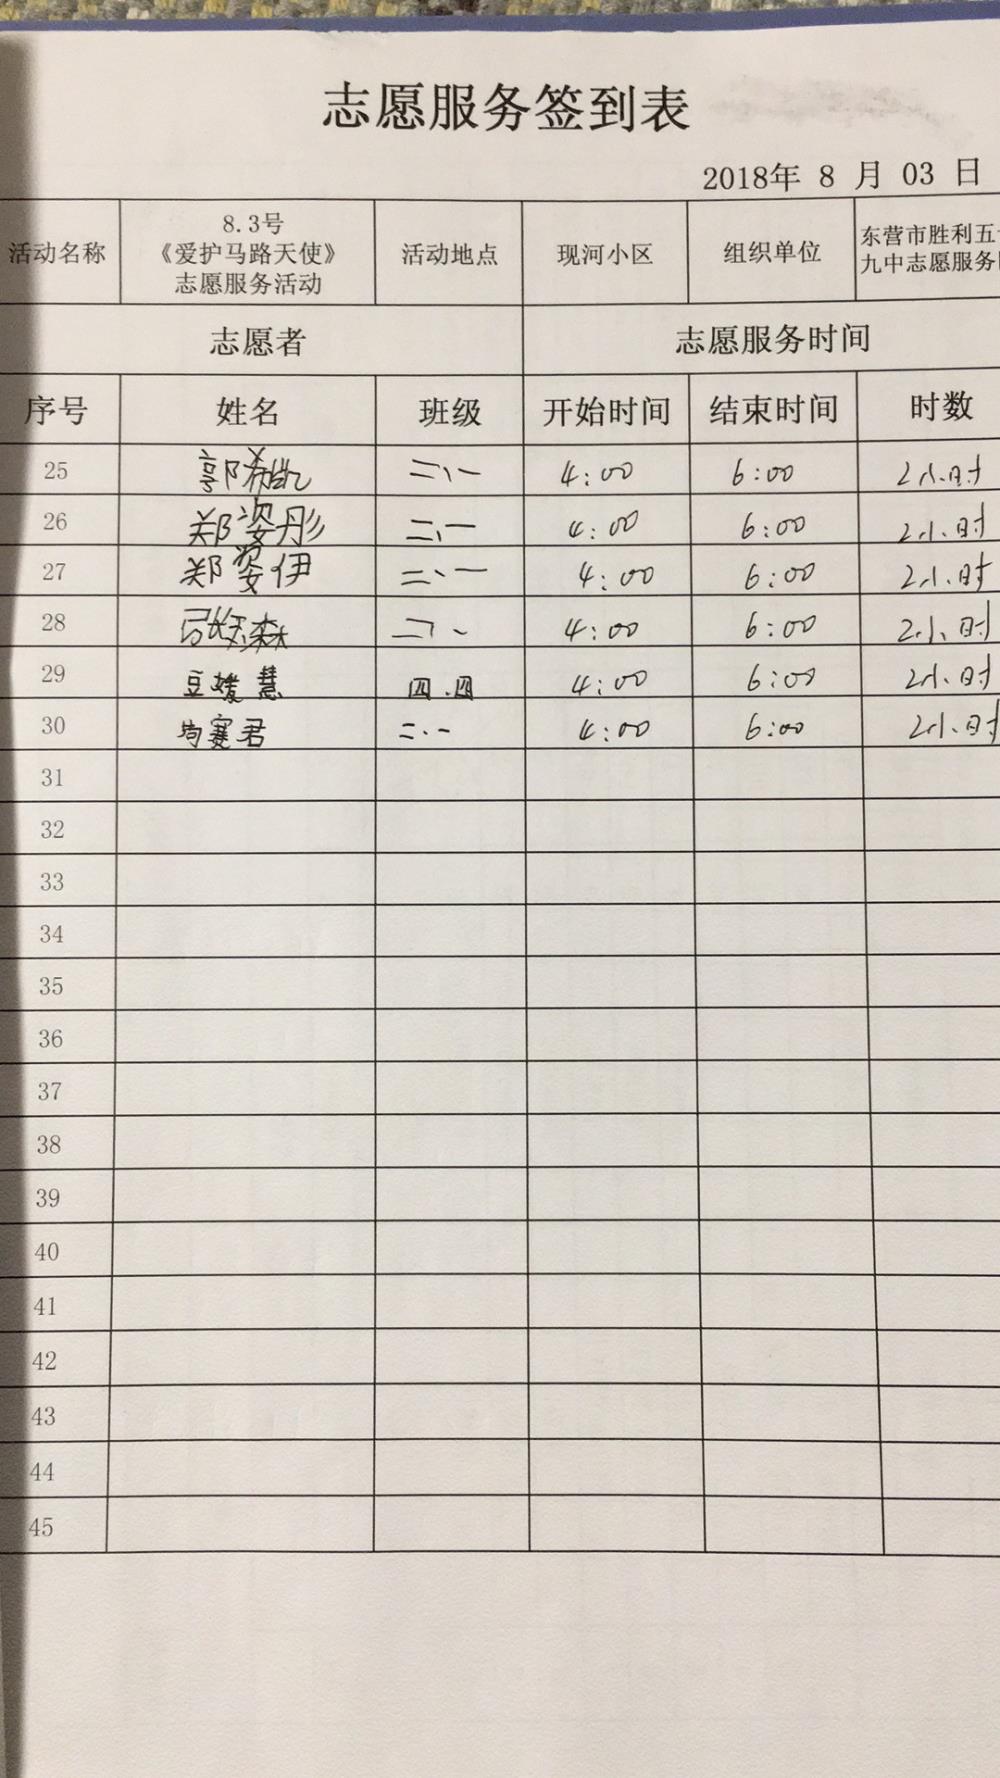 志愿服务签到表
2018年 8 月 03 日
活动名称 8.3号《爱护马路天使》志愿服务活动 活动地点 现河小区 组织单位 东营市胜利五 九中志愿服务
志愿者 志愿服务时间
序号 姓名 班级 开始时间 结束时间 时数
25 郭希凯 二、一 4:00 6:00 2小时
26 郑姿彤 二、一 4:00 6:00 2小时
27 郑姿伊 二、一 4:00 6:00 2小时
28 4:00 6:00 2小时
29 豆媛慧 四.四 4:00 6:00 2小时
30 赛君 二.一 4:00 6:00 2小时
31
32
33
34
35
36
37
38
39
40
41
42
43
44
45